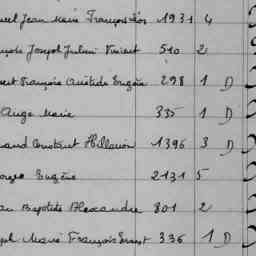 uel Jean Marie François Léon 1931 4
ançois Joseph Julien Vincent 510 2
ert François Aristide Eugène 298 1 D
Ange Marie 335 1 D
and Constant Hilarion 1396 3 D
orges Eugène 2131 5
an Baptiste Alexandre 801 2
eph Marie François Ernest 336 1 D